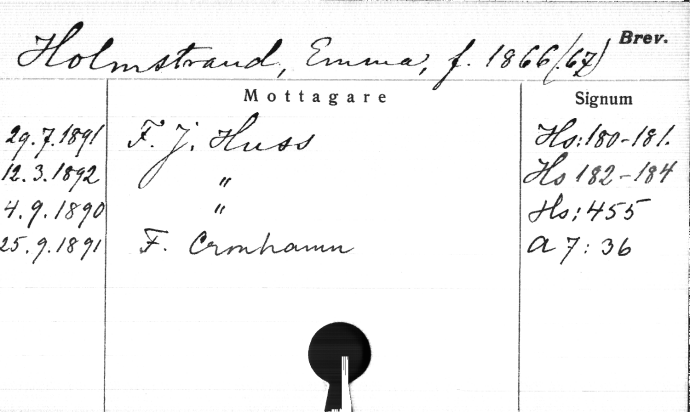 Holmstrand, Emma, f. 1866(67) Brev.
Mottagare Signum
29.7.1891 F. J. Huss Hs: 180-181.
12.3.1892 " Hs 182-184
4.9.1890 " Hs: 455
25.9.1891 F. Cronhamn A 7: 36